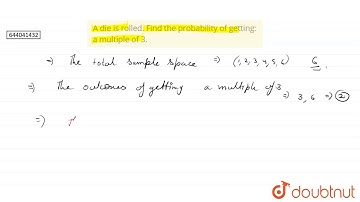 A die is rolled. Find the probability of getting:
a multiple of 3.
644041432
⇒ The total sample space ⇒ (1, 2, 3, 4, 5, 6) 6
⇒ The outcomes of getting a multiple of 3
⇒ 3, 6 ⇒ 2
⇒
doubtnut